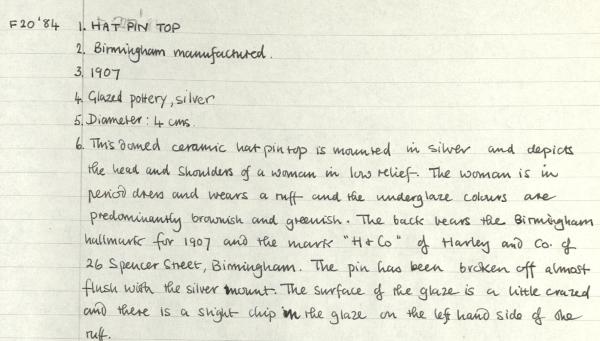 F20'84 1. HAT PIN TOP
2. Birmingham manufactured.
3. 1907
4. Glazed pottery, silver
5. Diameter: 4 cms.
6. This domed ceramic hat pin top is mounted in silver and depicts
the head and shoulders of a woman in low relief. The woman is in
period dress and wears a ruff and the underglaze colours are
predominantly brownish and greenish. The back bears the Birmingham
hallmark for 1907 and the mark "H & Co" of Harley and Co. of
26 Spencer Street, Birmingham. The pin has been broken off almost
flush with the silver mount. The surface of the glaze is a little crazed
and there is a slight chip in the glaze on the left hand side of the
ruff.